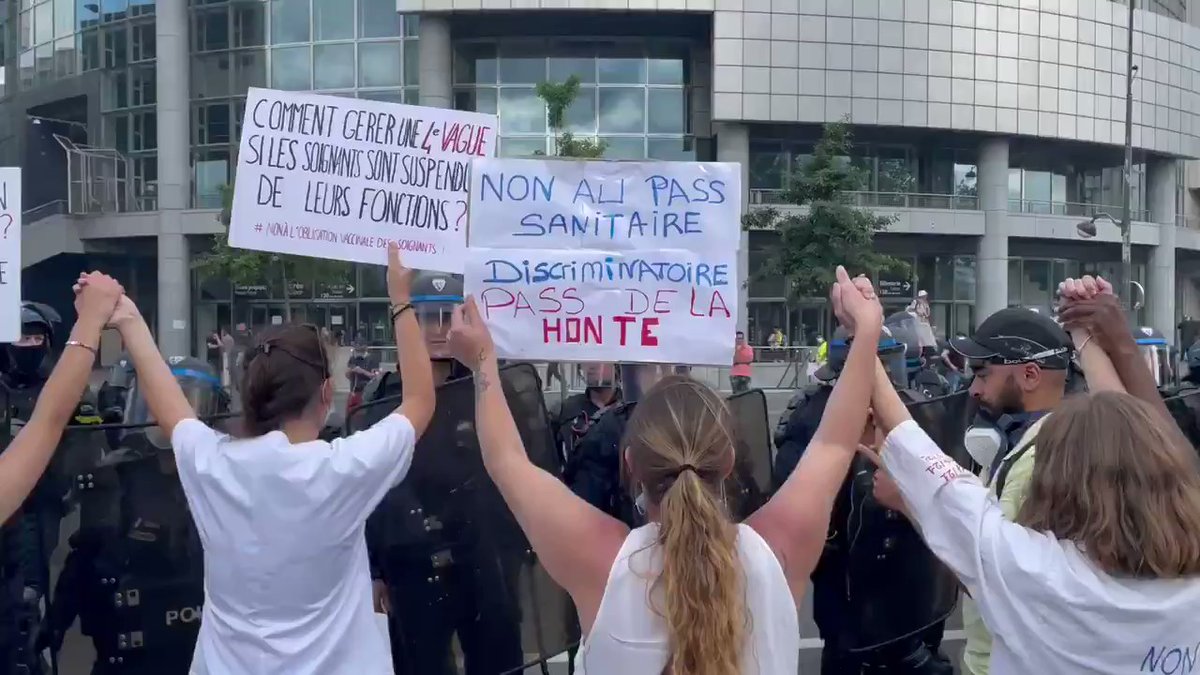 COMMENT GERER UNE 4e VAGUE
SI LES SOIGNANTS SONT SUSPENDU
DE LEURS FONCTIONS?
# NON À L'OBLIGATION VACCINALE DES SOIGNANTS!
NON AU PASS
SANITAIRE
DISCRIMINATOIRE
PASS DE LA
HONTE
?
E
PO
NON